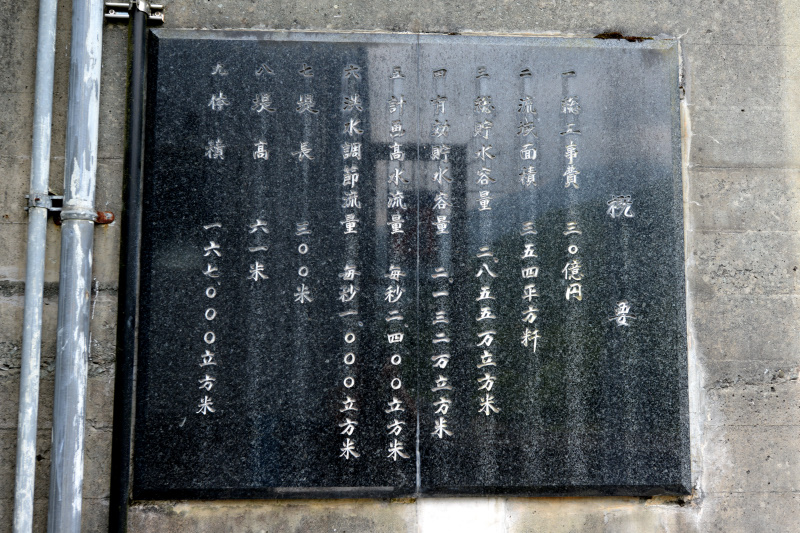 概要
一 総工事費 三〇億円
二 流域面積 三五四平方粁
三 総貯水容量 二八五五万立方米
四 有効貯水容量 二一三二万立方米
五 計画高水流量 毎秒二四〇〇立方米
六 洪水調節流量 毎秒一〇〇〇立方米
七 堤長 三〇〇米
八 堤高 六一米
九 体積 一六七〇〇〇立方米